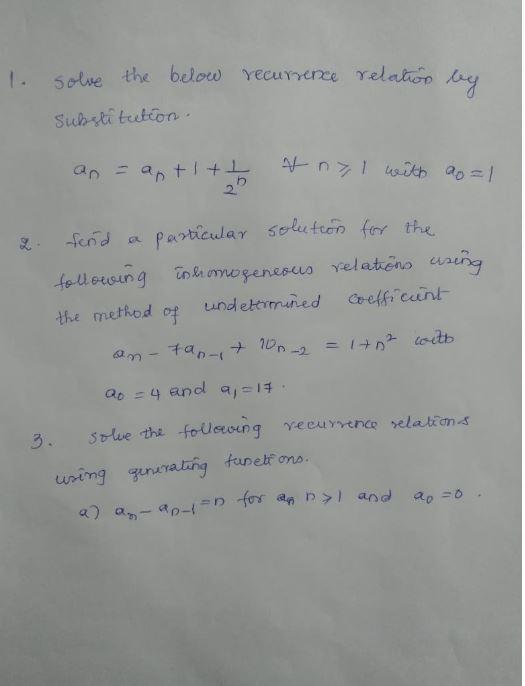 1. solve the below recurrence relation by
substitution.
an = an + 1 + 1/2^n ∀ n ≥ 1 with a0 = 1
2. find a particular solution for the
following inhomogeneous relations using
the method of undetermined coefficient
an - 7an-1 + 10n-2 = 1+n² with
a0 = 4 and a1 = 17.
3. solve the following recurrence relations
using generating functions.
a) an - an-1 = n for n ≥ 1 and a0 = 0.